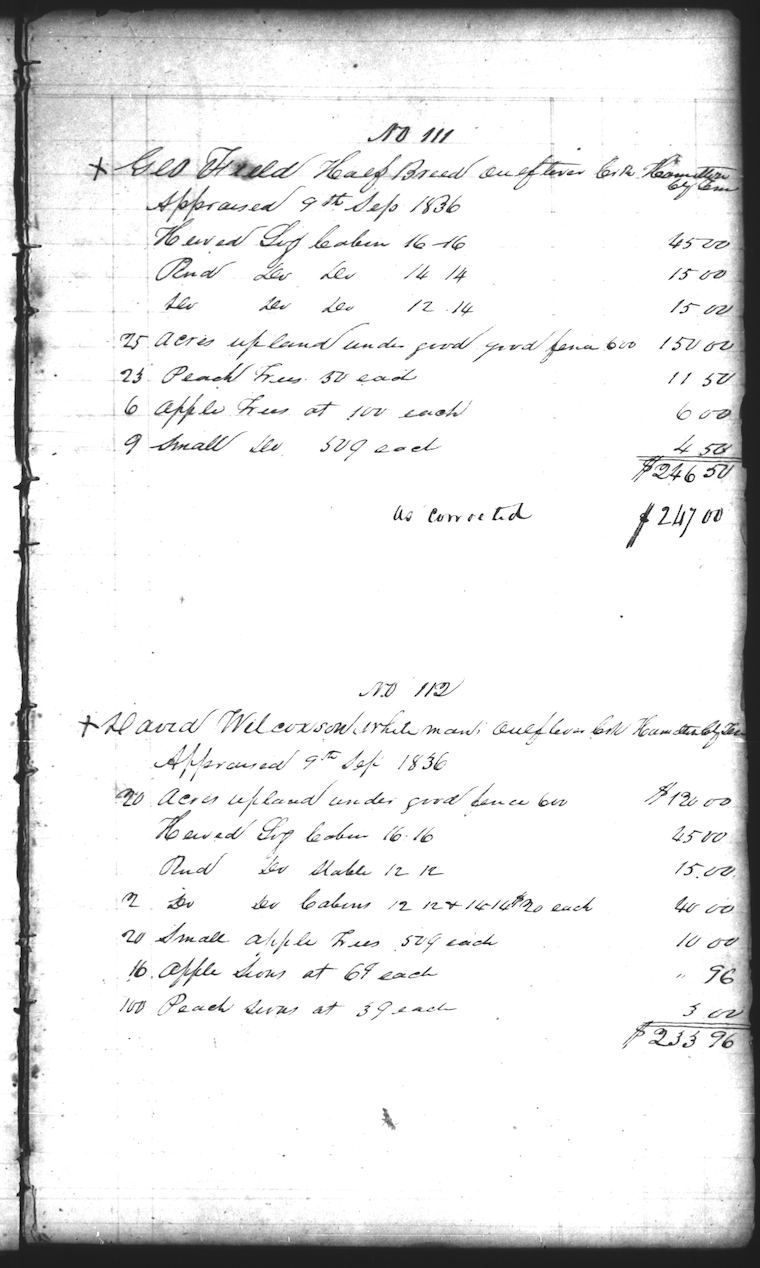 No 111
+ Geo Field Half Breed Ooltever Crk Hamilton
Cty Ten
Appraised 9th Sep 1836
Hewed Log Cabin 16-16 45 00
Rnd Do Do 14 14 15 00
Do Do Do 12.14 15 00
25 Acres upland under good good fence 600 150 00
23 Peach Trees 50 each 11 50
6 Apple Trees at 100 each 6 00
9 Small Do 50¢ each 4 50
$246 50
as corrected $247 00
No 112
+ David Wilcoxson White man Ooltever Crk Hamilton Cty Ten
Appraised 9th Sep 1836
20 Acres upland under good fence 600 $120 00
Hewed Log Cabin 16.16 45 00
Rnd Do Stable 12 12 15.00
2 Do Do Cabins 12 12 + 14-14 $20 each 40 00
20 Small apple Trees 50¢ each 10 00
16 Apple Sions at 6¢ each " 96
100 Peach Sions at 3¢ each 3 00
$233 96